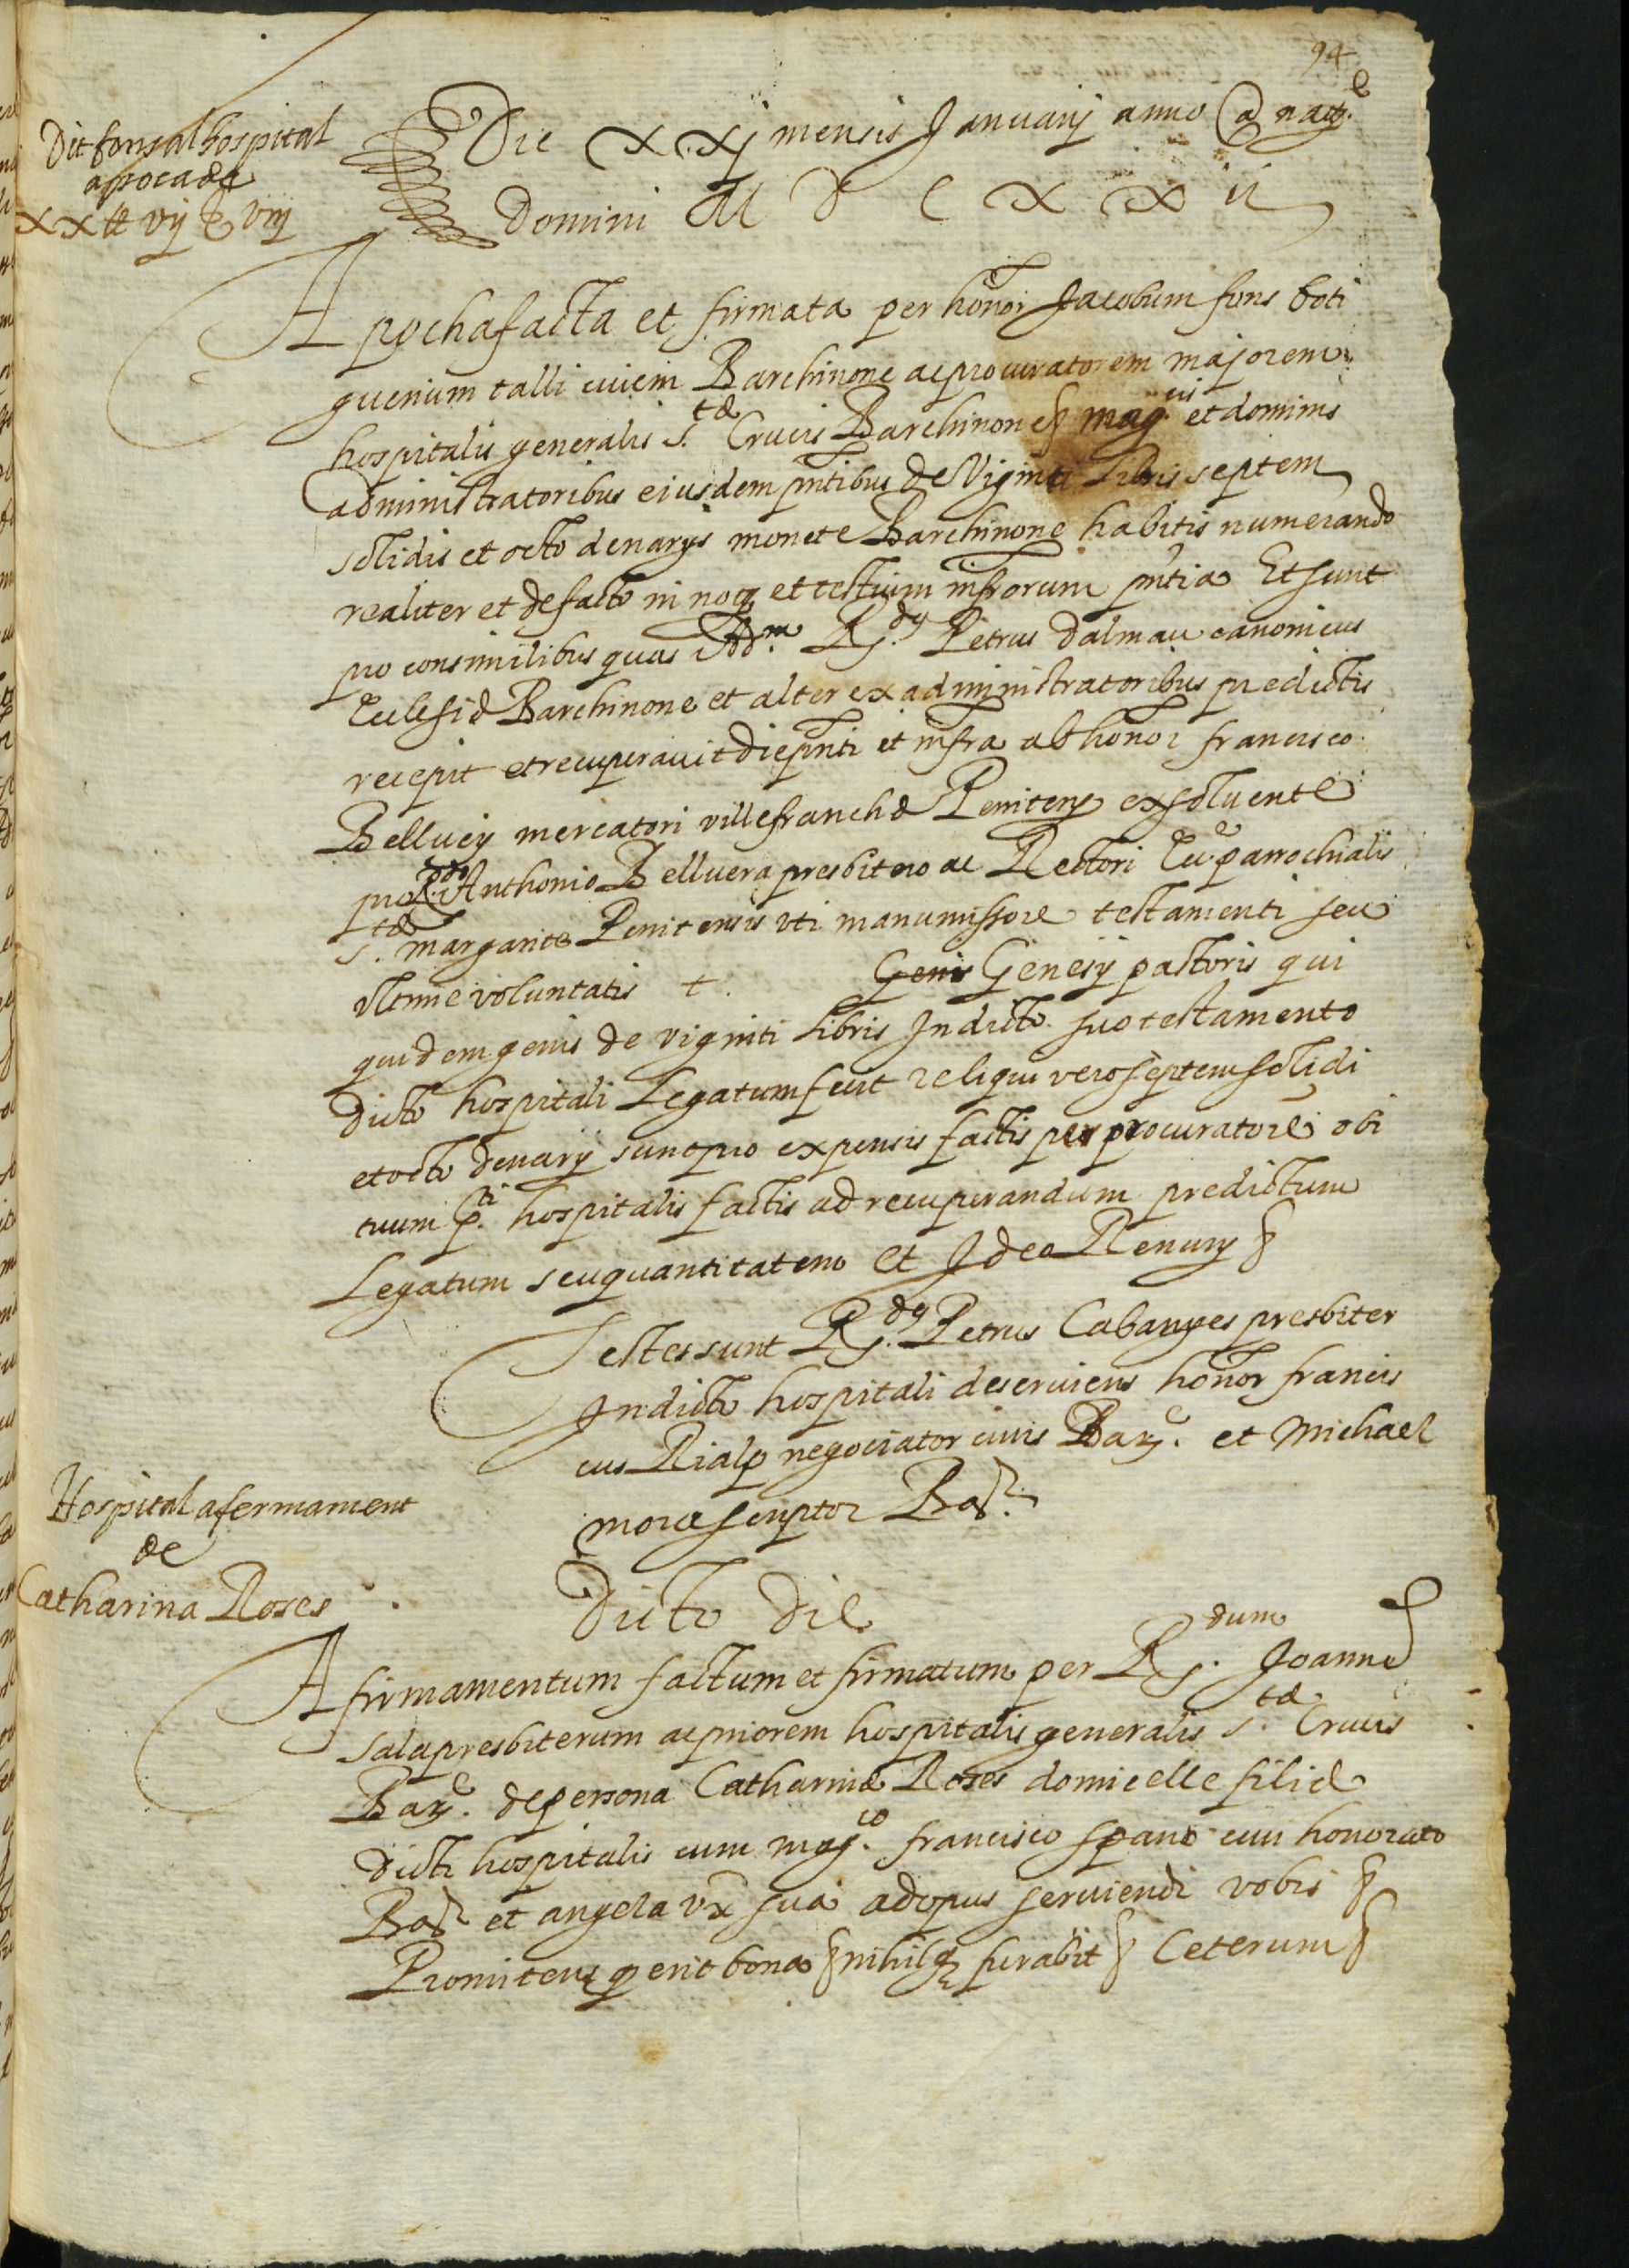 94
Dit fons al hospital
apocade
xx ℔ vij ẜ viij
Die xxj mensis Januarij anno a natte
Domini M D C x x ii
Apocha facta et firmata per honor Jacobum fons boti
guerium talli civem Barchinone ac procuratorem majorem
hospitalis generalis S.tæ Crucis Barchinone § mag.cis et dominis
administratoribus eiusdem pntibus de Viginti Libris septem
solidis et octo denarys monete Barchinone habitis numerando
realiter et de facto in noṛ et testium infrorum pntia Et sunt
pro consimilibus quas Ad.m R.dus Petrus dalmau canonicus
Ecclesiæ Barchinone et alter ex administratoribus predictis
recepit et recuperavit die pnti et infra ab honor francisco
Belluey mercatori villefranchæ Peniteny exsoluente
pro R.do Anthonio Belluera presbitero ac Rectori Ecc.e parrochialis
S.tæ margarite Penitensis uti manumissore testamenti seu
ultime voluntatis +. Genis Genesij pastoris qui
quidem genis de viginti Libris In dicto suo testamento
dicto hospitali Legatum fecit reliqui vero septem solidi
et octo denarij sunt pro expensis factis per procuratore obi
tuum p.ti hospitalis factis ad recuperandum predictum
Legatum seu quantitatem et Ideo Renuny §
Testes sunt R.dus Petrus Cabanyes presbiter
In dicto hospitali deserviens honor francis
cus Rialp negociator civis Bar.e et Michael
mora scriptor Bar.
Hospital afermament
de
Catharina Roses
Dicto die
Afirmamentum factum et firmatum per R.dum Joanne
Sala presbiterum ac priorem hospitalis generalis S.tæ Crucis
Bar.e de persona Catharinæ Roses domicelle filiæ
dicti hospitalis cum mag.co francisco spano civi honorato
Bar et angela ux sua ad opus serviendi vobis §
Promitens q erit bona § nihilq furabit § Ceterum §